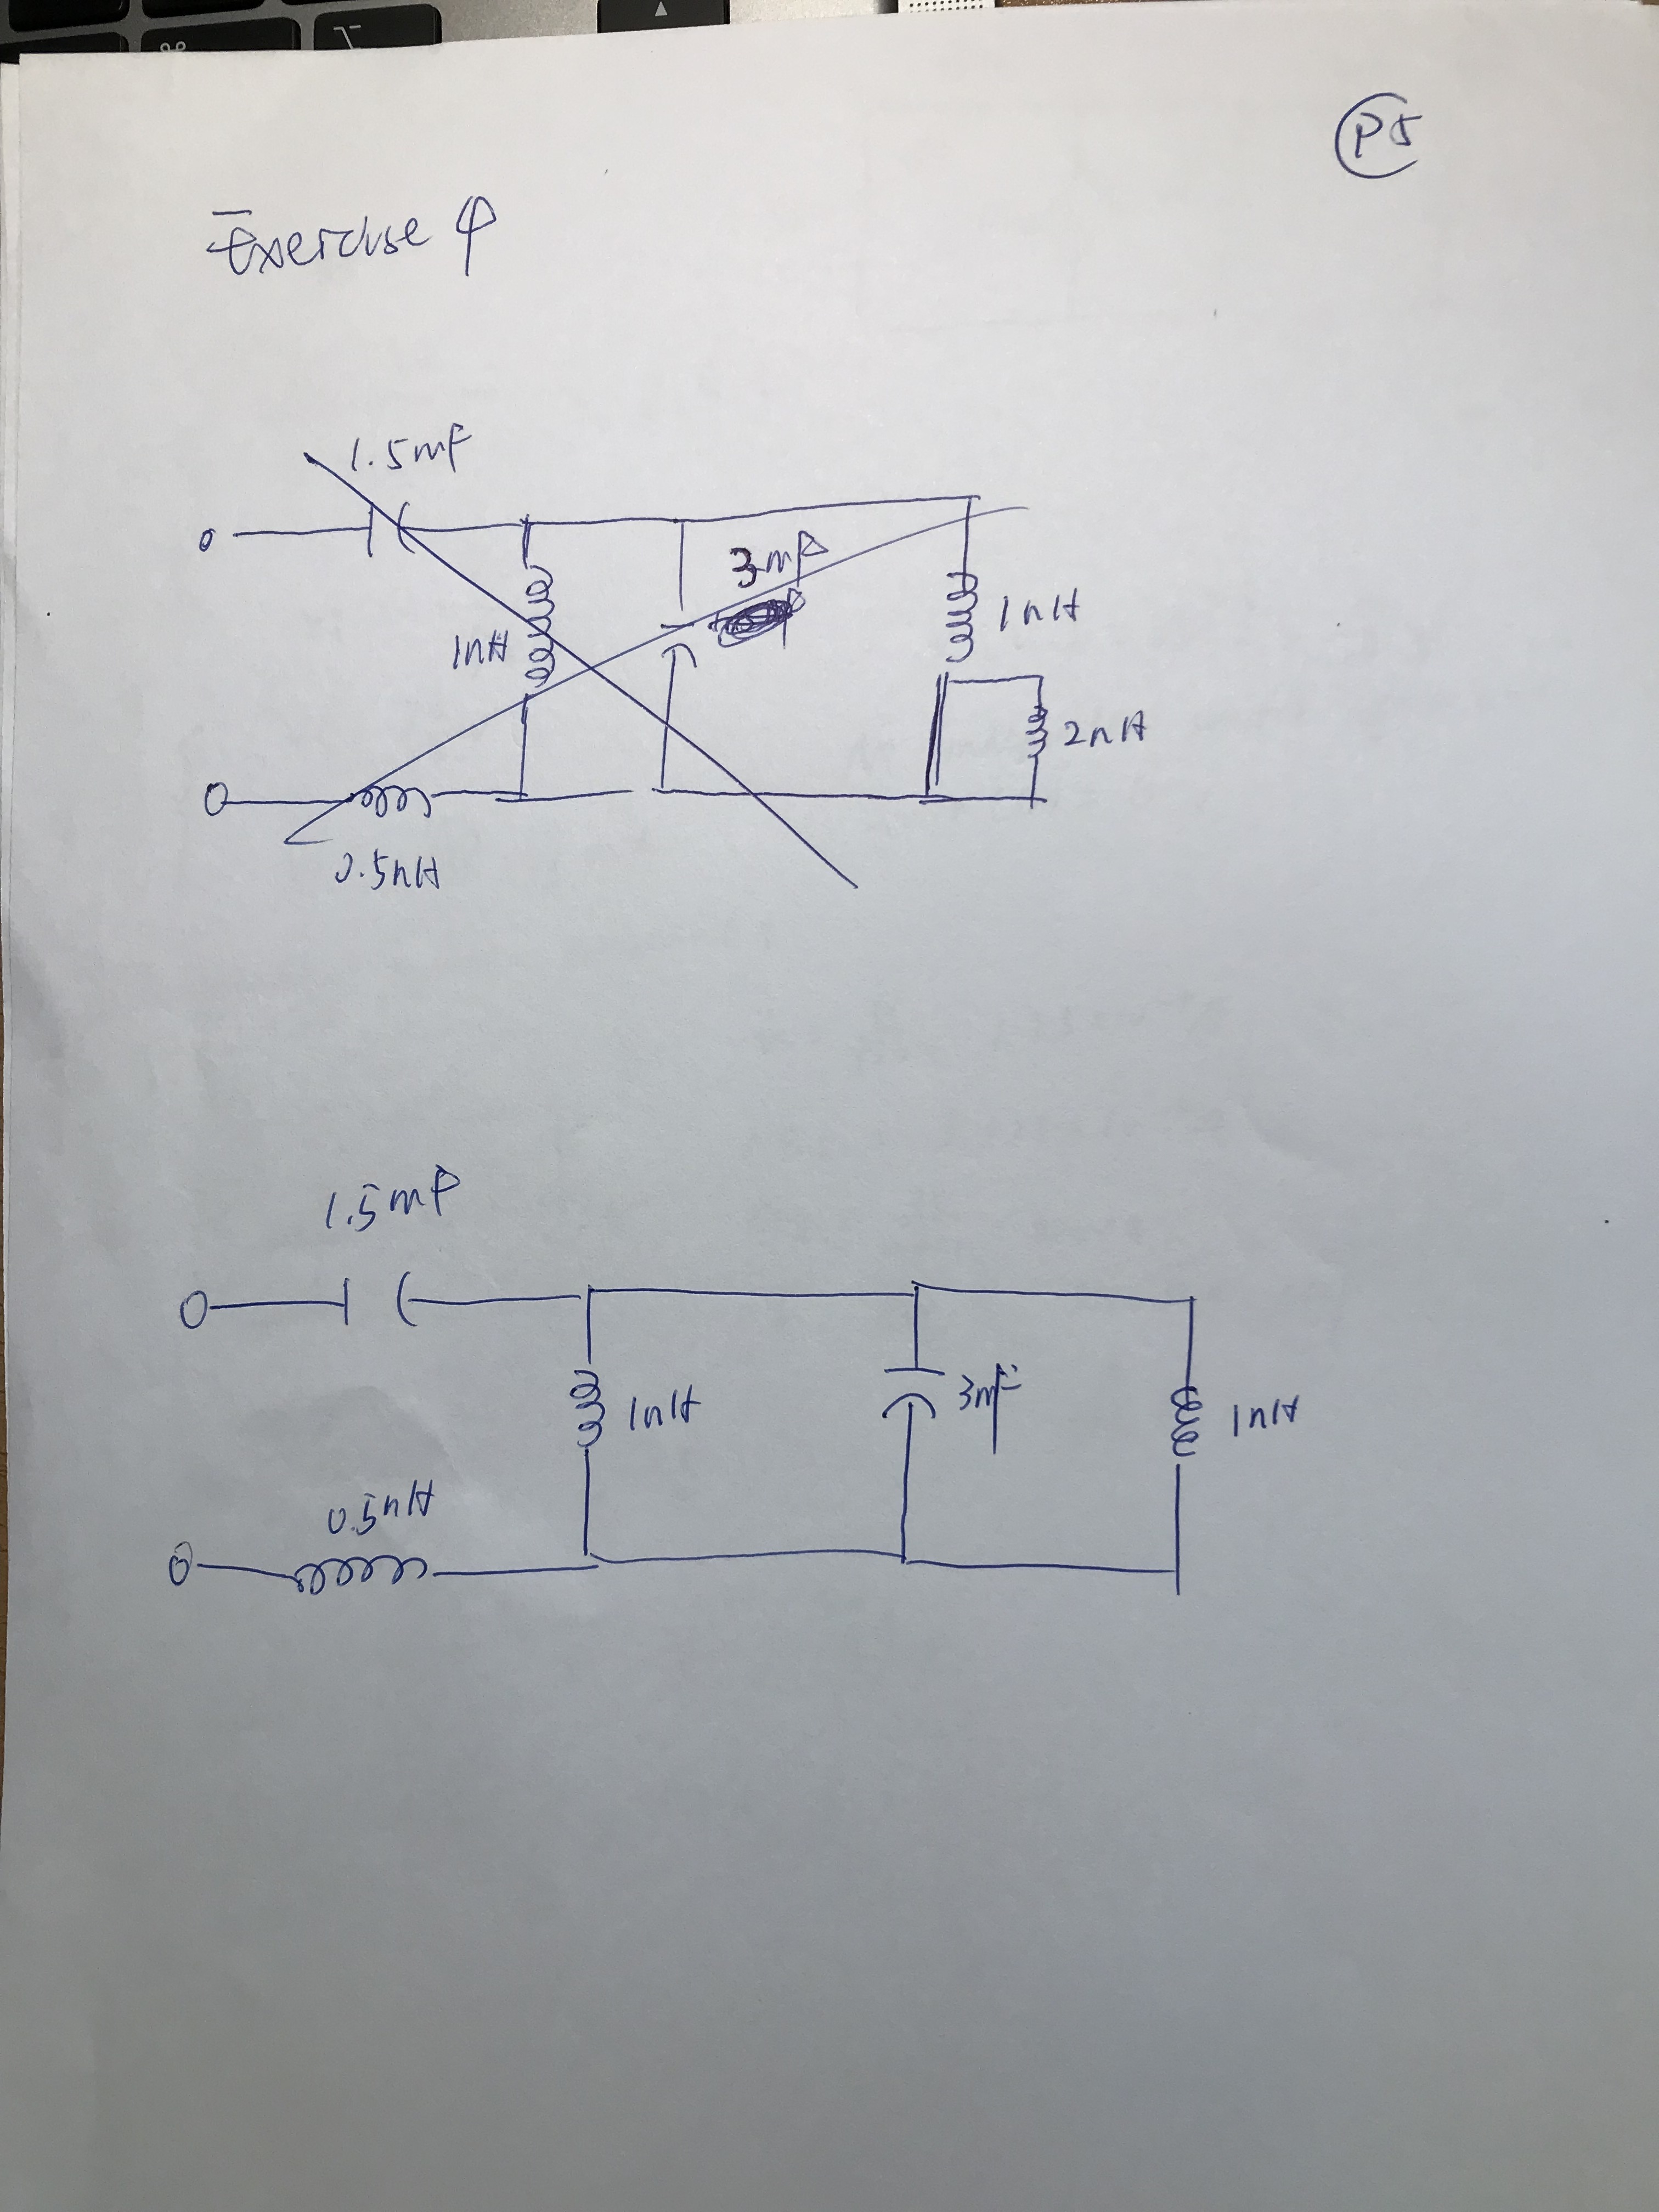 P5
Exercise 4
1.5mF
3mF
1nH
1nH
2nH
0.5nH
1.5mF
1nH
3mF
1nH
0.5nH